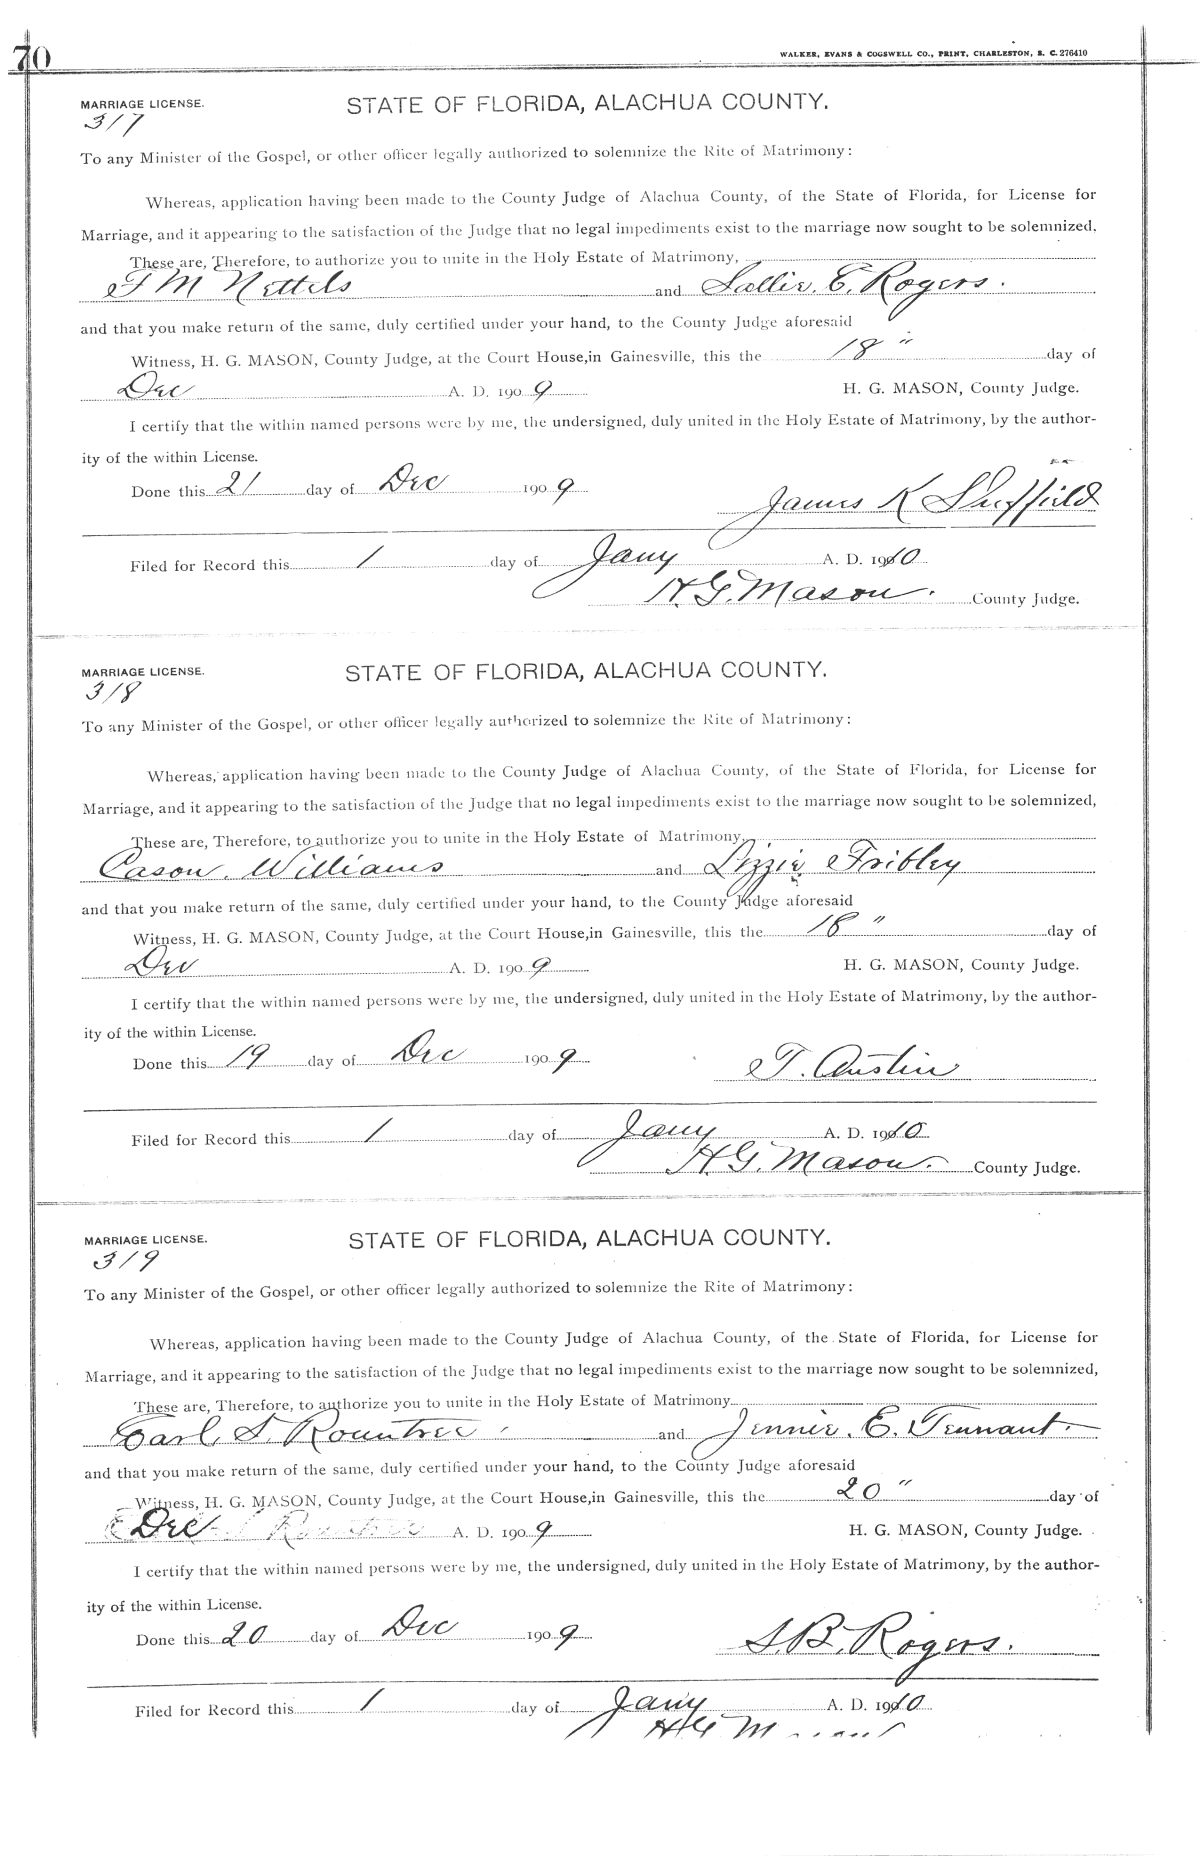 70
WALKER, EVANS & COGSWELL CO., PRINT, CHARLESTON, S. C. 276410
MARRIAGE LICENSE.
STATE OF FLORIDA, ALACHUA COUNTY.
317
To any Minister of the Gospel, or other officer legally authorized to solemnize the Rite of Matrimony:
Whereas, application having been made to the County Judge of Alachua County, of the State of Florida, for License for
Marriage, and it appearing to the satisfaction of the Judge that no legal impediments exist to the marriage now sought to be solemnized.
These are, Therefore, to authorize you to unite in the Holy Estate of Matrimony,
F M Nettels and Sallie. E. Rogers.
and that you make return of the same, duly certified under your hand, to the County Judge aforesaid
Witness, H. G. MASON, County Judge, at the Court House, in Gainesville, this the 18 " day of
Dec A. D. 1909 H. G. MASON, County Judge.
I certify that the within named persons were by me, the undersigned, duly united in the Holy Estate of Matrimony, by the author-
ity of the within License.
Done this 21 day of Dec 1909
James K Sheffield
Filed for Record this 1 day of Jany A. D. 1910
H. G. Mason. County Judge.
MARRIAGE LICENSE.
STATE OF FLORIDA, ALACHUA COUNTY.
318
To any Minister of the Gospel, or other officer legally authorized to solemnize the Rite of Matrimony:
Whereas, application having been made to the County Judge of Alachua County, of the State of Florida, for License for
Marriage, and it appearing to the satisfaction of the Judge that no legal impediments exist to the marriage now sought to be solemnized,
These are, Therefore, to authorize you to unite in the Holy Estate of Matrimony,
Cason. Williams and Lizzie Fribley
and that you make return of the same, duly certified under your hand, to the County Judge aforesaid
Witness, H. G. MASON, County Judge, at the Court House, in Gainesville, this the 18 " day of
Dec A. D. 1909 H. G. MASON, County Judge.
I certify that the within named persons were by me, the undersigned, duly united in the Holy Estate of Matrimony, by the author-
ity of the within License.
Done this 19 day of Dec 1909
T. Austin
Filed for Record this 1 day of Jany A. D. 1910
H. G. Mason. County Judge.
MARRIAGE LICENSE.
STATE OF FLORIDA, ALACHUA COUNTY.
319
To any Minister of the Gospel, or other officer legally authorized to solemnize the Rite of Matrimony:
Whereas, application having been made to the County Judge of Alachua County, of the State of Florida, for License for
Marriage, and it appearing to the satisfaction of the Judge that no legal impediments exist to the marriage now sought to be solemnized,
These are, Therefore, to authorize you to unite in the Holy Estate of Matrimony
Earl S. Rountree and Jennie. E. Tennant.
and that you make return of the same, duly certified under your hand, to the County Judge aforesaid
Witness, H. G. MASON, County Judge, at the Court House, in Gainesville, this the 20 " day of
Dec A. D. 1909 H. G. MASON, County Judge.
I certify that the within named persons were by me, the undersigned, duly united in the Holy Estate of Matrimony, by the author-
ity of the within License.
Done this 20 day of Dec 1909
S. B. Rogers.
Filed for Record this 1 day of Jany A. D. 1910